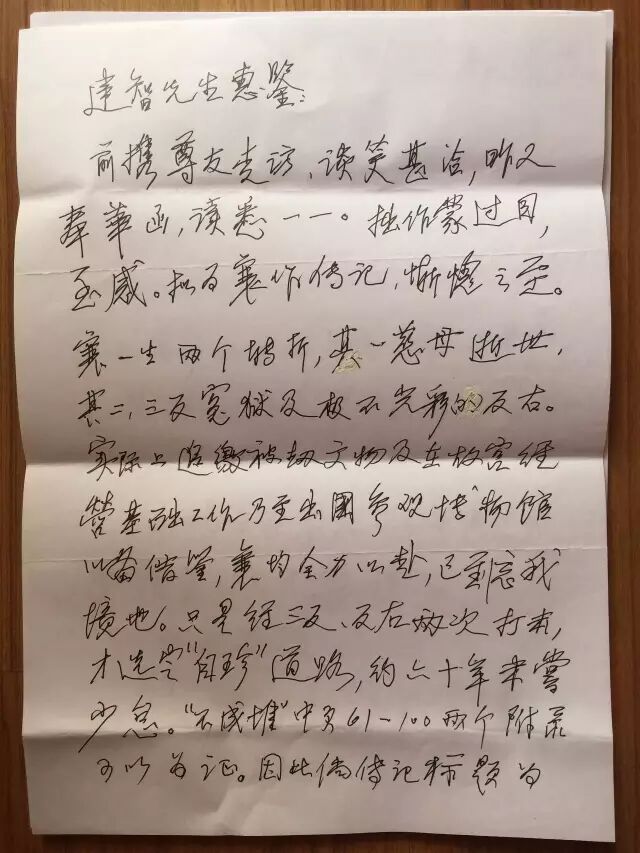 建智先生惠鉴：
前携尊友来访，谈笑甚洽，昨又
奉华函，读悉一一。拙作蒙过目，
至感。拟为襄作传记，惭愧之至。
襄一生两个转折，其一慈母逝世，
其二，三反冤狱及极不光彩的反右。
实际上追缴被劫文物及在故宫经
营基础工作乃至出國参观博物馆
以备借鉴，襄均全力以赴，已到忘我
境地。只是经三反、反右两次打击，
才选定“自珍”道路，约六十年未尝
少怠。“不成堆”中页61-100两个附录
可以为证。因此倘传记标题为